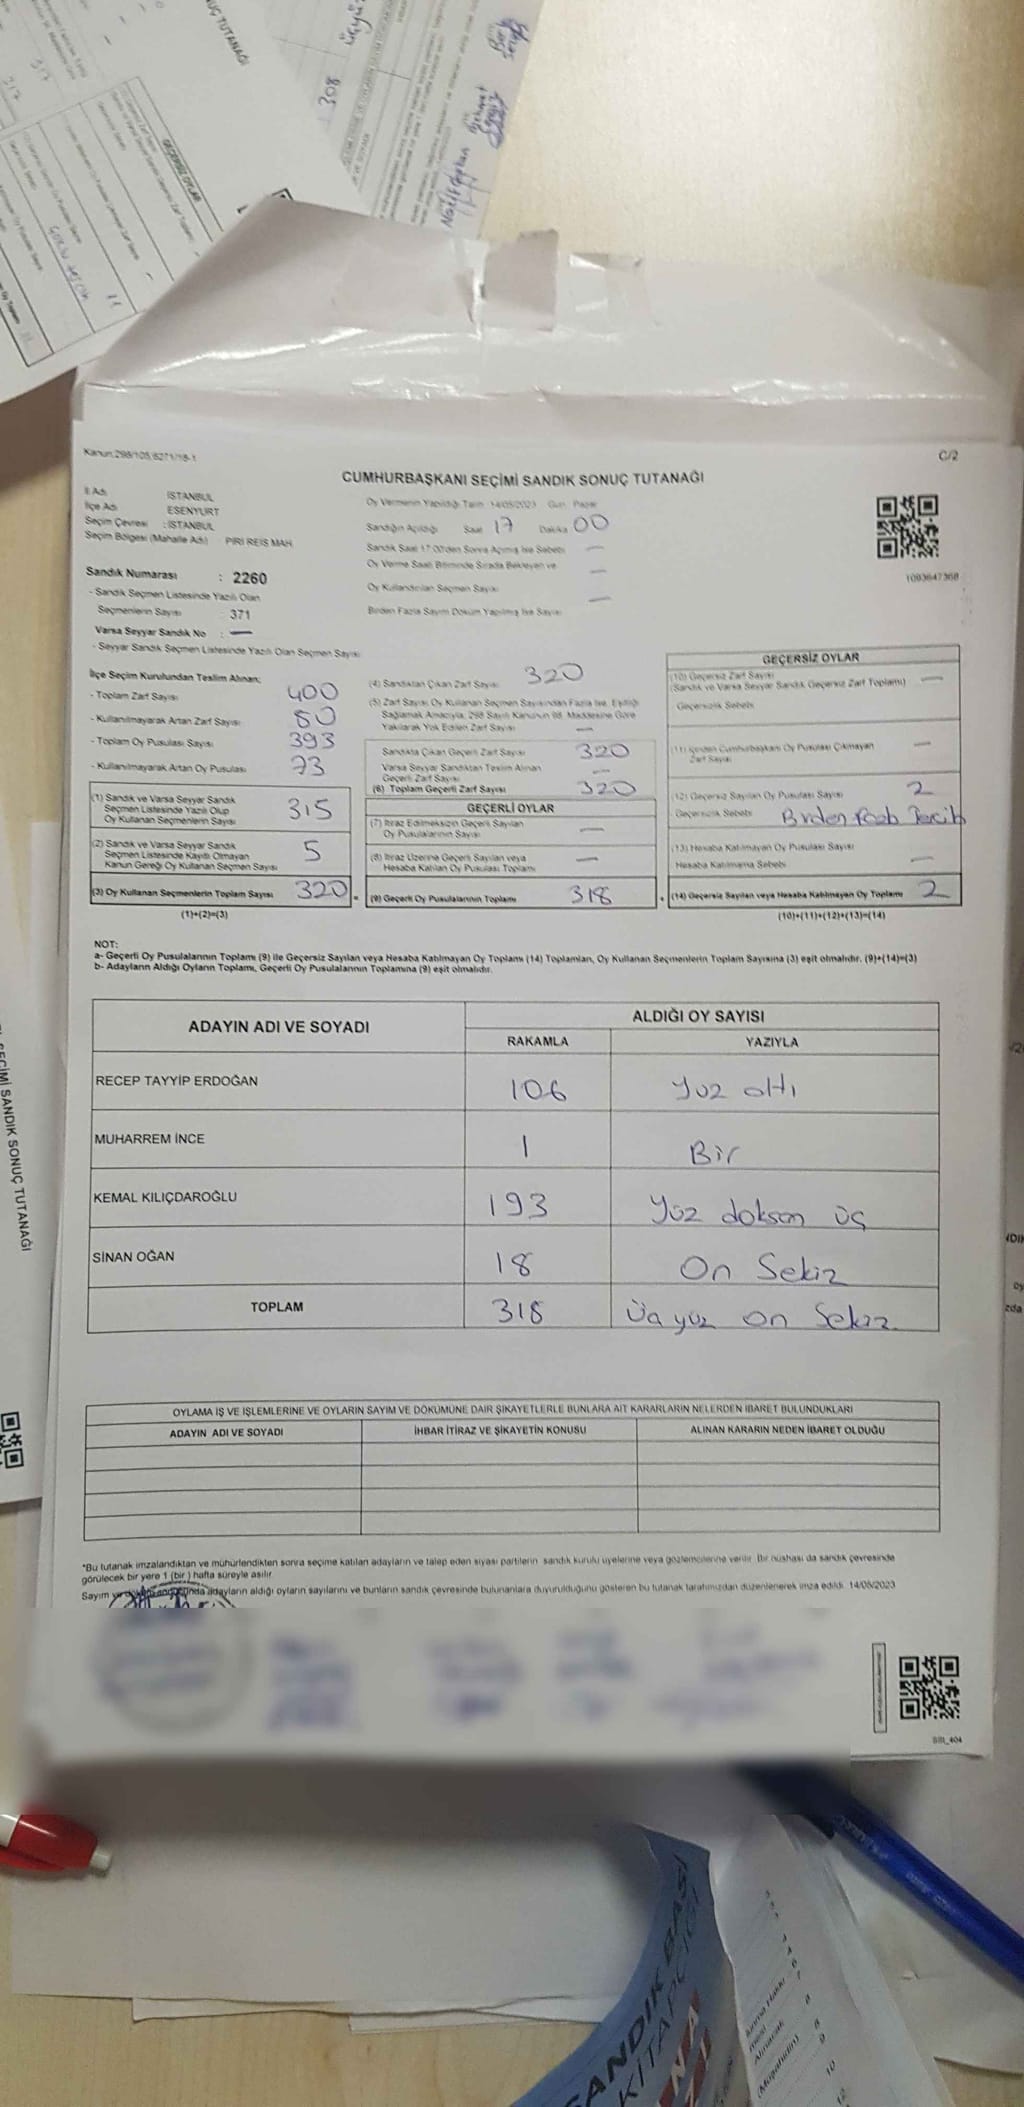 308
GEÇERSİZ OYLAR
Kanun:298/105,6271/18-1
C/2
CUMHURBAŞKANI SEÇİMİ SANDIK SONUÇ TUTANAĞI
İl Adı İSTANBUL
İlçe Adı ESENYURT
Seçim Çevresi : İSTANBUL
Seçim Bölgesi (Mahalle Adı) PİRİ REİS MAH.
Oy Vermenin Yapıldığı Tarih 14/05/2023 Gün Pazar
Sandığın Açıldığı Saat 17 Dakika 00
Sandık Saat 17:00'den Sonra Açılmış İse Sebebi —
Oy Verme Saati Bitiminde Sırada Bekleyen ve
Oy Kullandırılan Seçmen Sayısı —
Birden Fazla Sayım Döküm Yapılmış İse Sayısı —
1093647368
Sandık Numarası : 2260
- Sandık Seçmen Listesinde Yazılı Olan
Seçmenlerin Sayısı 371
Varsa Seyyar Sandık No : —
- Seyyar Sandık Seçmen Listesinde Yazılı Olan Seçmen Sayısı
İlçe Seçim Kurulundan Teslim Alınan;
- Toplam Zarf Sayısı 400
- Kullanılmayarak Artan Zarf Sayısı 80
- Toplam Oy Pusulası Sayısı 393
- Kullanılmayarak Artan Oy Pusulası 73
(1) Sandık ve Varsa Seyyar Sandık
Seçmen Listesinde Yazılı Olup
Oy Kullanan Seçmenlerin Sayısı 315
(2) Sandık ve Varsa Seyyar Sandık
Seçmen Listesinde Kayıtlı Olmayan
Kanun Gereği Oy Kullanan Seçmen Sayısı 5
(3) Oy Kullanan Seçmenlerin Toplam Sayısı 320
(1)+(2)=(3)
(4) Sandıktan Çıkan Zarf Sayısı 320
(5) Zarf Sayısı Oy Kullanan Seçmen Sayısından Fazla İse, Eşitliği
Sağlamak Amacıyla, 298 Sayılı Kanunun 98. Maddesine Göre
Yakılarak Yok Edilen Zarf Sayısı —
Sandıkta Çıkan Geçerli Zarf Sayısı 320
Varsa Seyyar Sandıktan Teslim Alınan
Geçerli Zarf Sayısı —
(6) Toplam Geçerli Zarf Sayısı 320
GEÇERLİ OYLAR
(7) İtiraz Edilmeksizin Geçerli Sayılan
Oy Pusulalarının Sayısı —
(8) İtiraz Üzerine Geçerli Sayılan veya
Hesaba Katılan Oy Pusulası Toplamı —
= (9) Geçerli Oy Pusulalarının Toplamı 318
GEÇERSİZ OYLAR
(10) Geçersiz Zarf Sayısı —
(Sandık ve Varsa Seyyar Sandık Geçersiz Zarf Toplamı)
Geçersizlik Sebebi
(11) İçinden Cumhurbaşkanı Oy Pusulası Çıkmayan
Zarf Sayısı —
(12) Geçersiz Sayılan Oy Pusulası Sayısı 2
Geçersizlik Sebebi
(13) Hesaba Katılmayan Oy Pusulası Sayısı —
Hesaba Katılmama Sebebi
+ (14) Geçersiz Sayılan veya Hesaba Katılmayan Oy Toplamı 2
(10)+(11)+(12)+(13)=(14)
NOT:
a- Geçerli Oy Pusulalarının Toplamı (9) ile Geçersiz Sayılan veya Hesaba Katılmayan Oy Toplamı (14) Toplamları, Oy Kullanan Seçmenlerin Toplam Sayısına (3) eşit olmalıdır. (9)+(14)=(3)
b- Adayların Aldığı Oyların Toplamı, Geçerli Oy Pusulalarının Toplamına (9) eşit olmalıdır.
ADAYIN ADI VE SOYADI
ALDIĞI OY SAYISI
RAKAMLA YAZIYLA
RECEP TAYYİP ERDOĞAN 106 Yüz altı
MUHARREM İNCE 1 Bir
KEMAL KILIÇDAROĞLU 193 Yüz doksan üç
SİNAN OĞAN 18 On Sekiz
TOPLAM 318 Üç yüz on Sekiz
OYLAMA İŞ VE İŞLEMLERİNE VE OYLARIN SAYIM VE DÖKÜMÜNE DAİR ŞİKAYETLERLE BUNLARA AİT KARARLARIN NELERDEN İBARET BULUNDUKLARI
ADAYIN ADI VE SOYADI İHBAR İTİRAZ VE ŞİKAYETİN KONUSU ALINAN KARARIN NEDEN İBARET OLDUĞU
*Bu tutanak imzalandıktan ve mühürlendikten sonra seçime katılan adayların ve talep eden siyasi partilerin sandık kurulu üyelerine veya gözlemcilerine verilir. Bir nüshası da sandık çevresinde
görülecek bir yere 1 (bir) hafta süreyle asılır.
Sayım ve döküm sonucunda adayların aldığı oyların sayılarını ve bunların sandık çevresinde bulunanlara duyurulduğunu gösteren bu tutanak tarafımızdan düzenlenerek imza edildi. 14/05/2023
SEÇİMİ SANDIK SONUÇ TUTANAĞI
SANDIK BAŞI
KİTAPÇIĞI